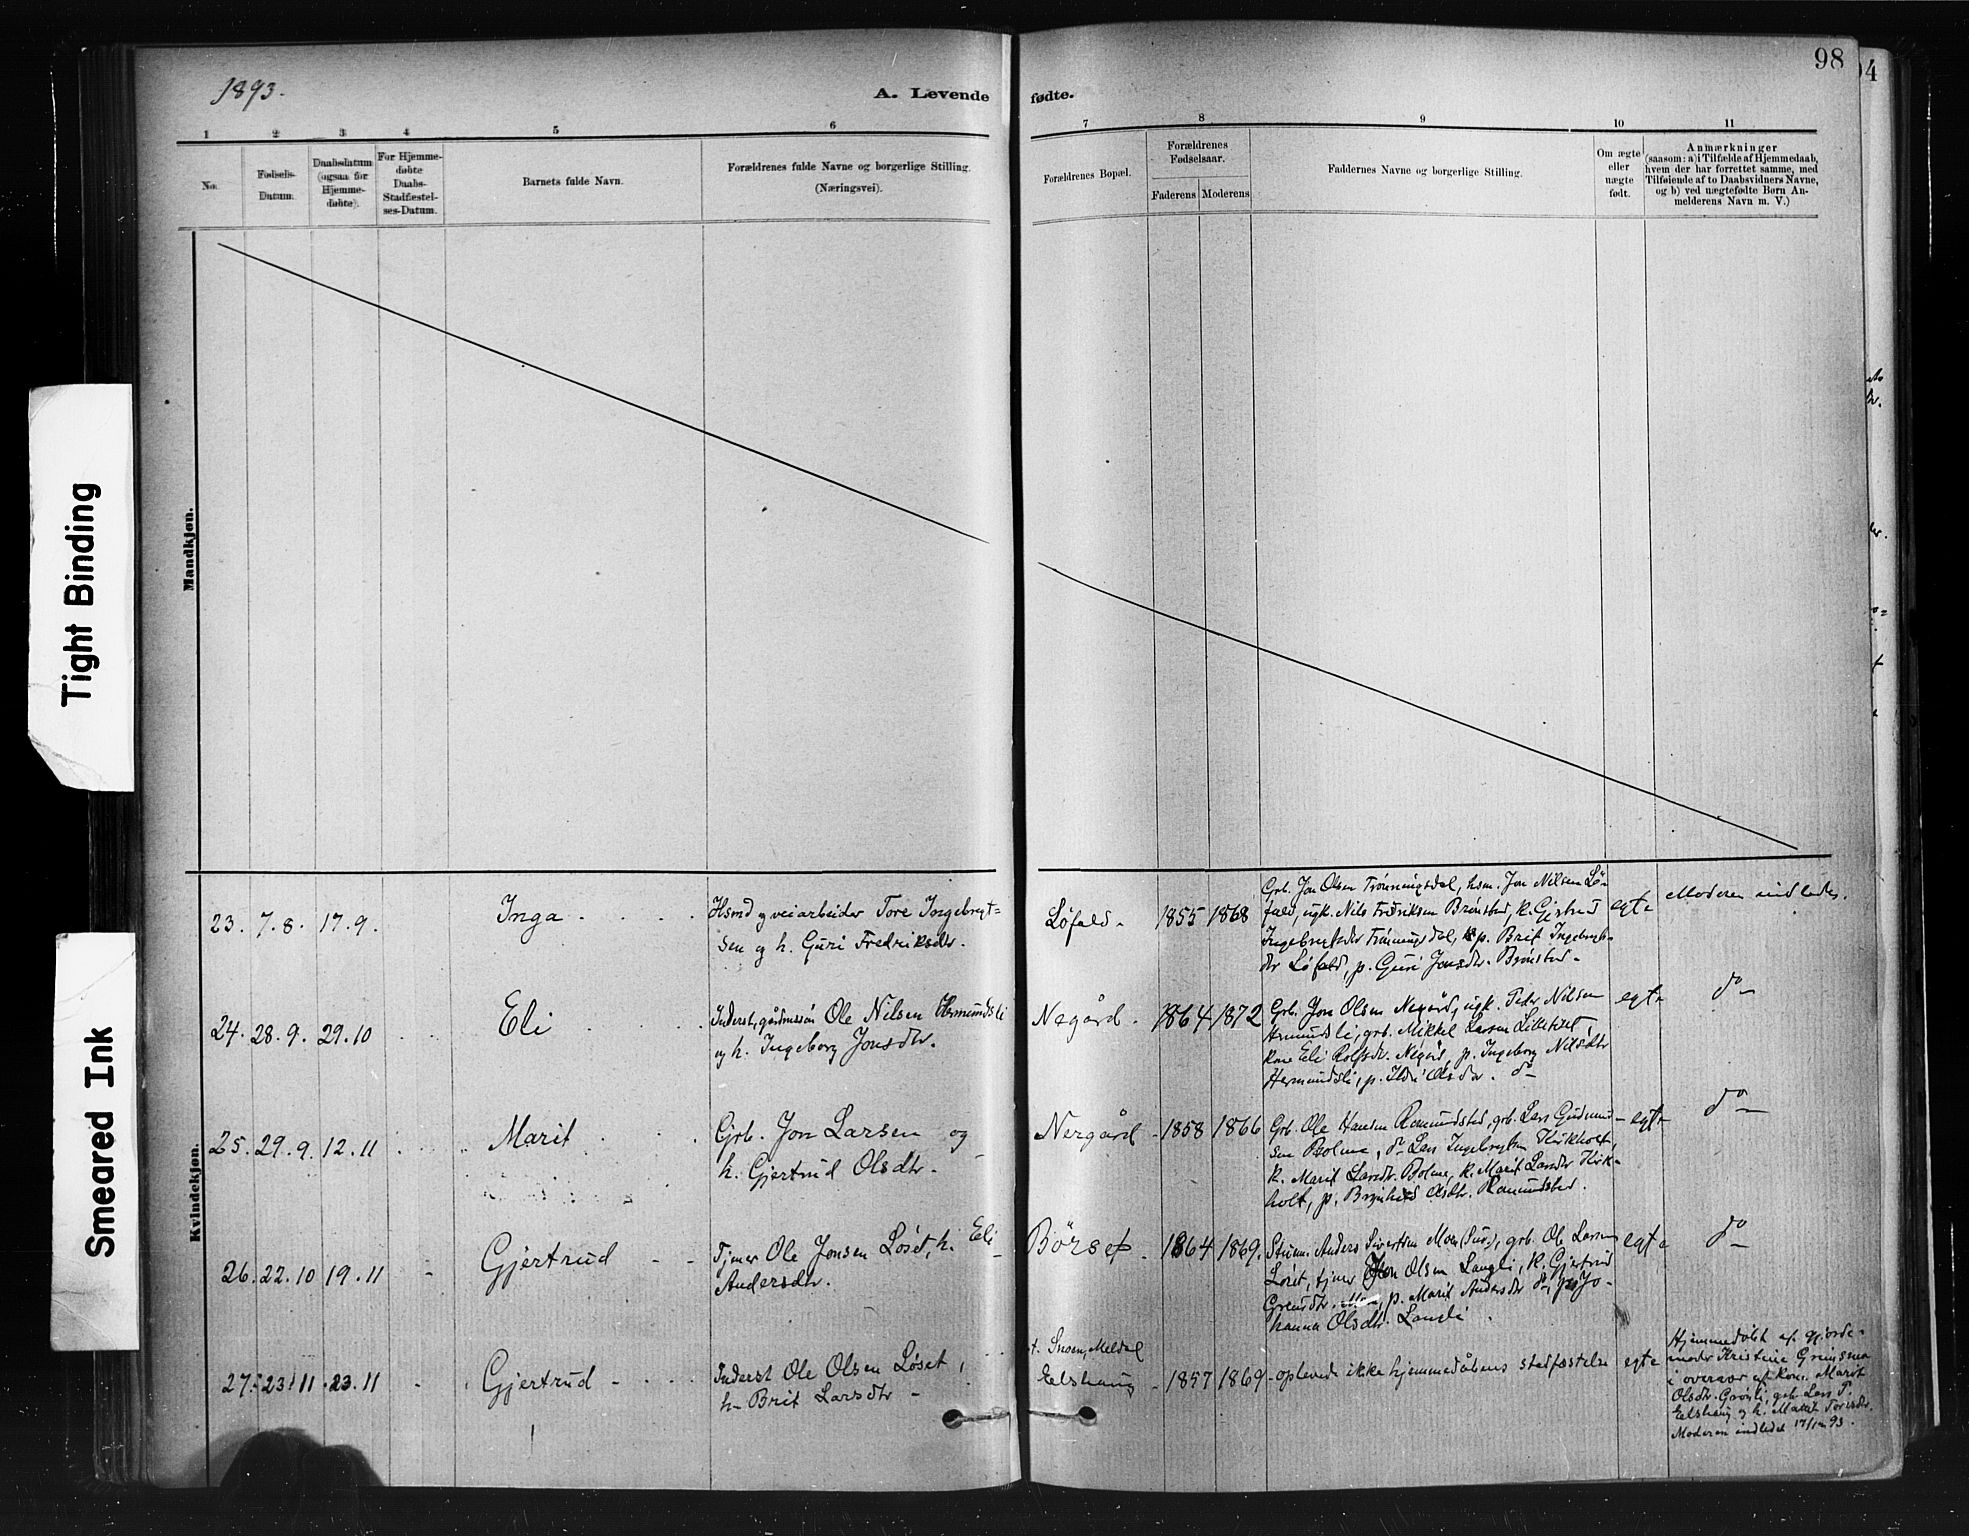 98
94
1893.
A. Levende
fødte.
1 2 3 4 5 6
7 8 9 10 11
No.
Fødsels-
Datum.
Daabsdatum
(ogsaa for
Hjemme-
døbte).
For Hjemme-
døbte
Daabs-
Stadfæstel-
ses-Datum.
Barnets fulde Navn.
Forældrenes fulde Navne og borgerlige Stilling.
(Næringsvei).
Forældrenes Bopæl.
Forældrenes
Fødselsaar.
Faderens
Moderens
Faddernes Navne og borgerlige Stilling.
Om ægte
eller
uægte
født.
Anmærkninger
(saasom: a) i Tilfælde af Hjemmedaab,
hvem der har forrettet samme, med
Tilføiende af to Daabsvidners Navne,
og b) ved uægtefødte Børn An-
melderens Navn m. V.)
Mandkjøn.
Kvindekjøn.
Tight Binding
Smeared Ink
23. 7.8. 17.9.
Inga
Hsmd og veiarbeider Tore Ingebrigt=
sen og h. Guri Fredriksdtr.
Løfald.
1855 1868
Grb. Jon Olsen Trönningsdal, hsm. Jon Nilsen Lö-
fald, ugk. Nils Fredriksen Brønstad, k. Gjertrud
Ingebrigtsdtr Trönningsdal, p. Brit Ingebrigts-
dtr Löfald, p. Guri Jonsdtr. Brønstad.
egte
Moderen indledet.
24. 28.9. 29.10
Eli
Inderst, gårdmssøn Ole Nilsen Hermundsli
og h. Ingeborg Jonsdtr.
Negård.
1864 1872
Grb. Jon Olsen Negård, ugk. Peder Nilsen
Hermundsli, grb. Mikkel Larsen
kone Eli Rolfsdr. Negård, p. Ingeborg Nilsdtr
Hermundsli, p. Ildri Olsdtr. do
egte
do
25. 29.9. 12.11
Marit
Grb. Jon Larsen og
h. Gjertrud Olsdtr.
Nergård
1858 1866
Grb. Ole Hansen Romundstad, grb. Lars Gudmund-
sen Bolme, do Lars Ingebrigtsen Kirkholt,
k. Marit Larsdtr. Bolme, k. Marit Larsdtr Kirk-
holt, p. Brynhild Olsdtr. Romundstad.
egte
do
26. 22.10 19.11
Gjertrud
Tjener Ole Jonsen Löset, h. Eli
Andersdtr.
Børset.
1864 1869.
Anders Sivertsen Moen grb. Ole Larsen
Löset, tjener Jon Olsen Langli, k. Gjertrud
p. Marit Andersdtr do, p. Jo-
hanna Olsdtr. Langli.
egte
do
27. 23.11 23.11
Gjertrud
Inderst Ole Olsen Løset,
h. Brit Larsdtr
Meldal
Elshaug
1857 1869
oplevede ikke hjemmedåbens stadfæstelse
egte
Hjemmedøbt af gjorde-
moder Kristine
i overvær af kone Marit
Olsdtr. grb. Lars P.
Elshaug og h. Marit Toresdtr.
Moderen indledet 17/12 93.